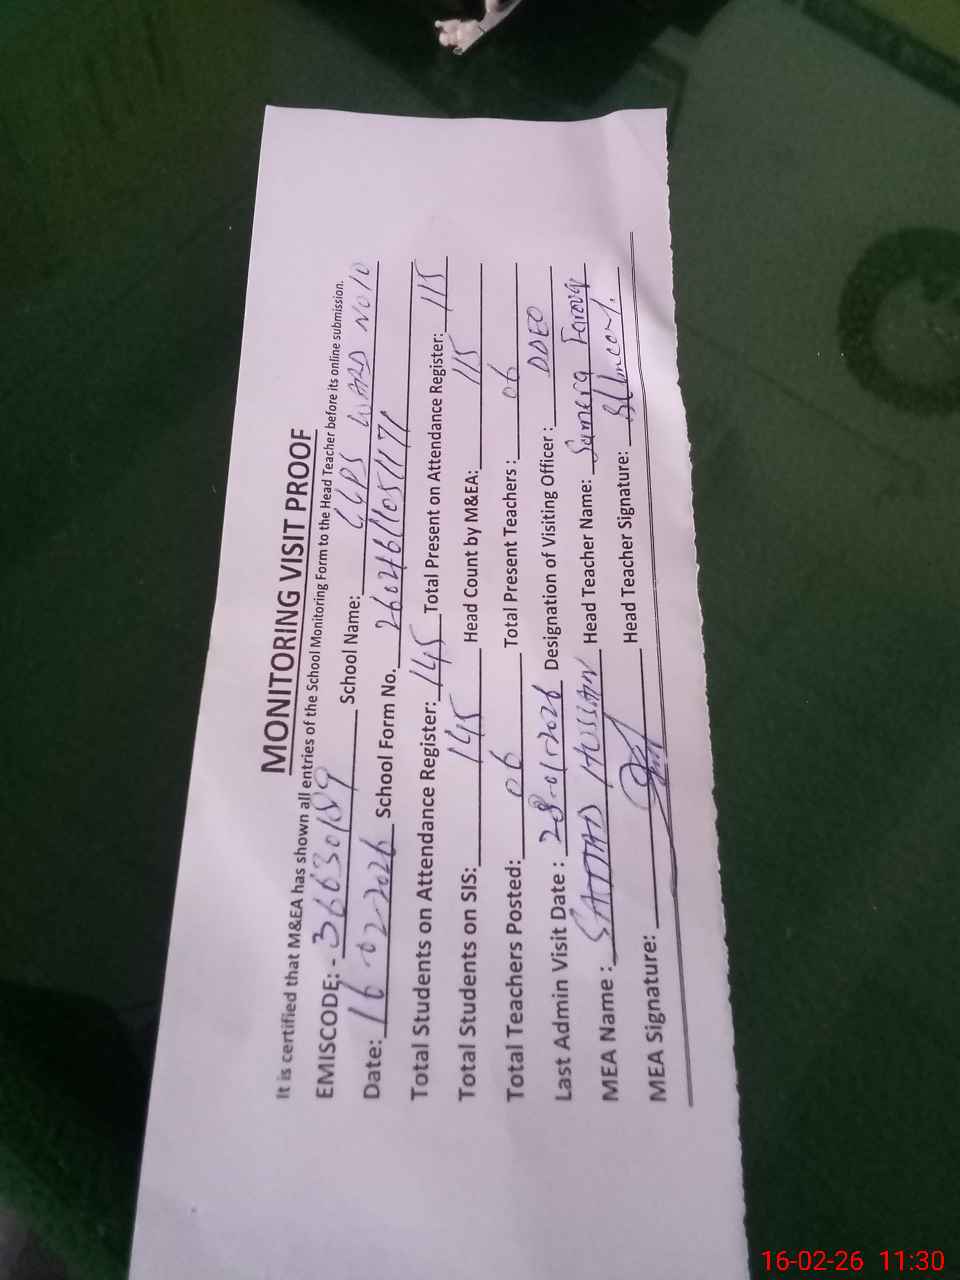 MONITORING VISIT PROOF
It is certified that M&EA has shown all entries of the School Monitoring Form to the Head Teacher before its online submission.
EMISCODE:- 36630189 School Name: GGPS WARD NO 10
Date: 16-02-2026 School Form No.
Total Students on Attendance Register: 145 Total Present on Attendance Register: 115
Total Students on SIS: 145 Head Count by M&EA: 115
Total Teachers Posted: 06 Total Present Teachers : 06
Last Admin Visit Date : 28-01-2026 Designation of Visiting Officer : DDEO
MEA Name : SAJJAD HUSSIAN Head Teacher Name: Samera Farooq
MEA Signature: Head Teacher Signature:
16-02-26 11:30